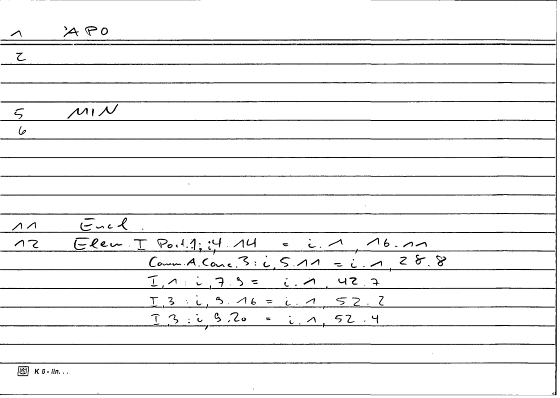 1 APO
2
5 MIN
6
11 Eucl.
12 Elem. I Post.1; i,4.14 = i.1, 16.11
Comm.A.Conc.3: i,5.11 = i.1, 28.8
I,1: i,7.9 = i.1, 42.7
I,3: i,9.16 = i.1, 52.2
I,3: i,9.20 = i.1, 52.4